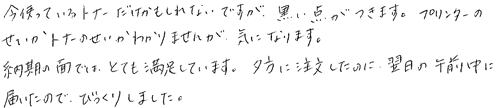 今使っているトナーだけかもしれないですが、黒い点がつきます。プリンターの
せいかトナーのせいかわかりませんが、気になります。
納期の面では、とても満足しています。夕方に注文したのに、翌日の午前中に
届いたので、びっくりしました。